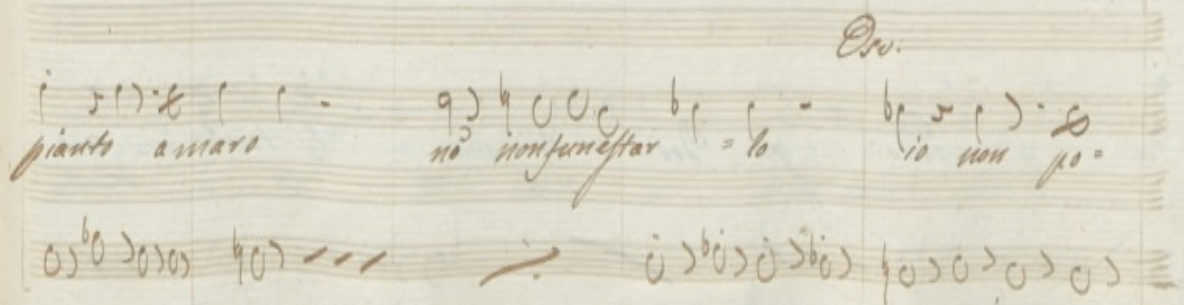 Osv:
pianto amaro nò non funestar = lo io non po =